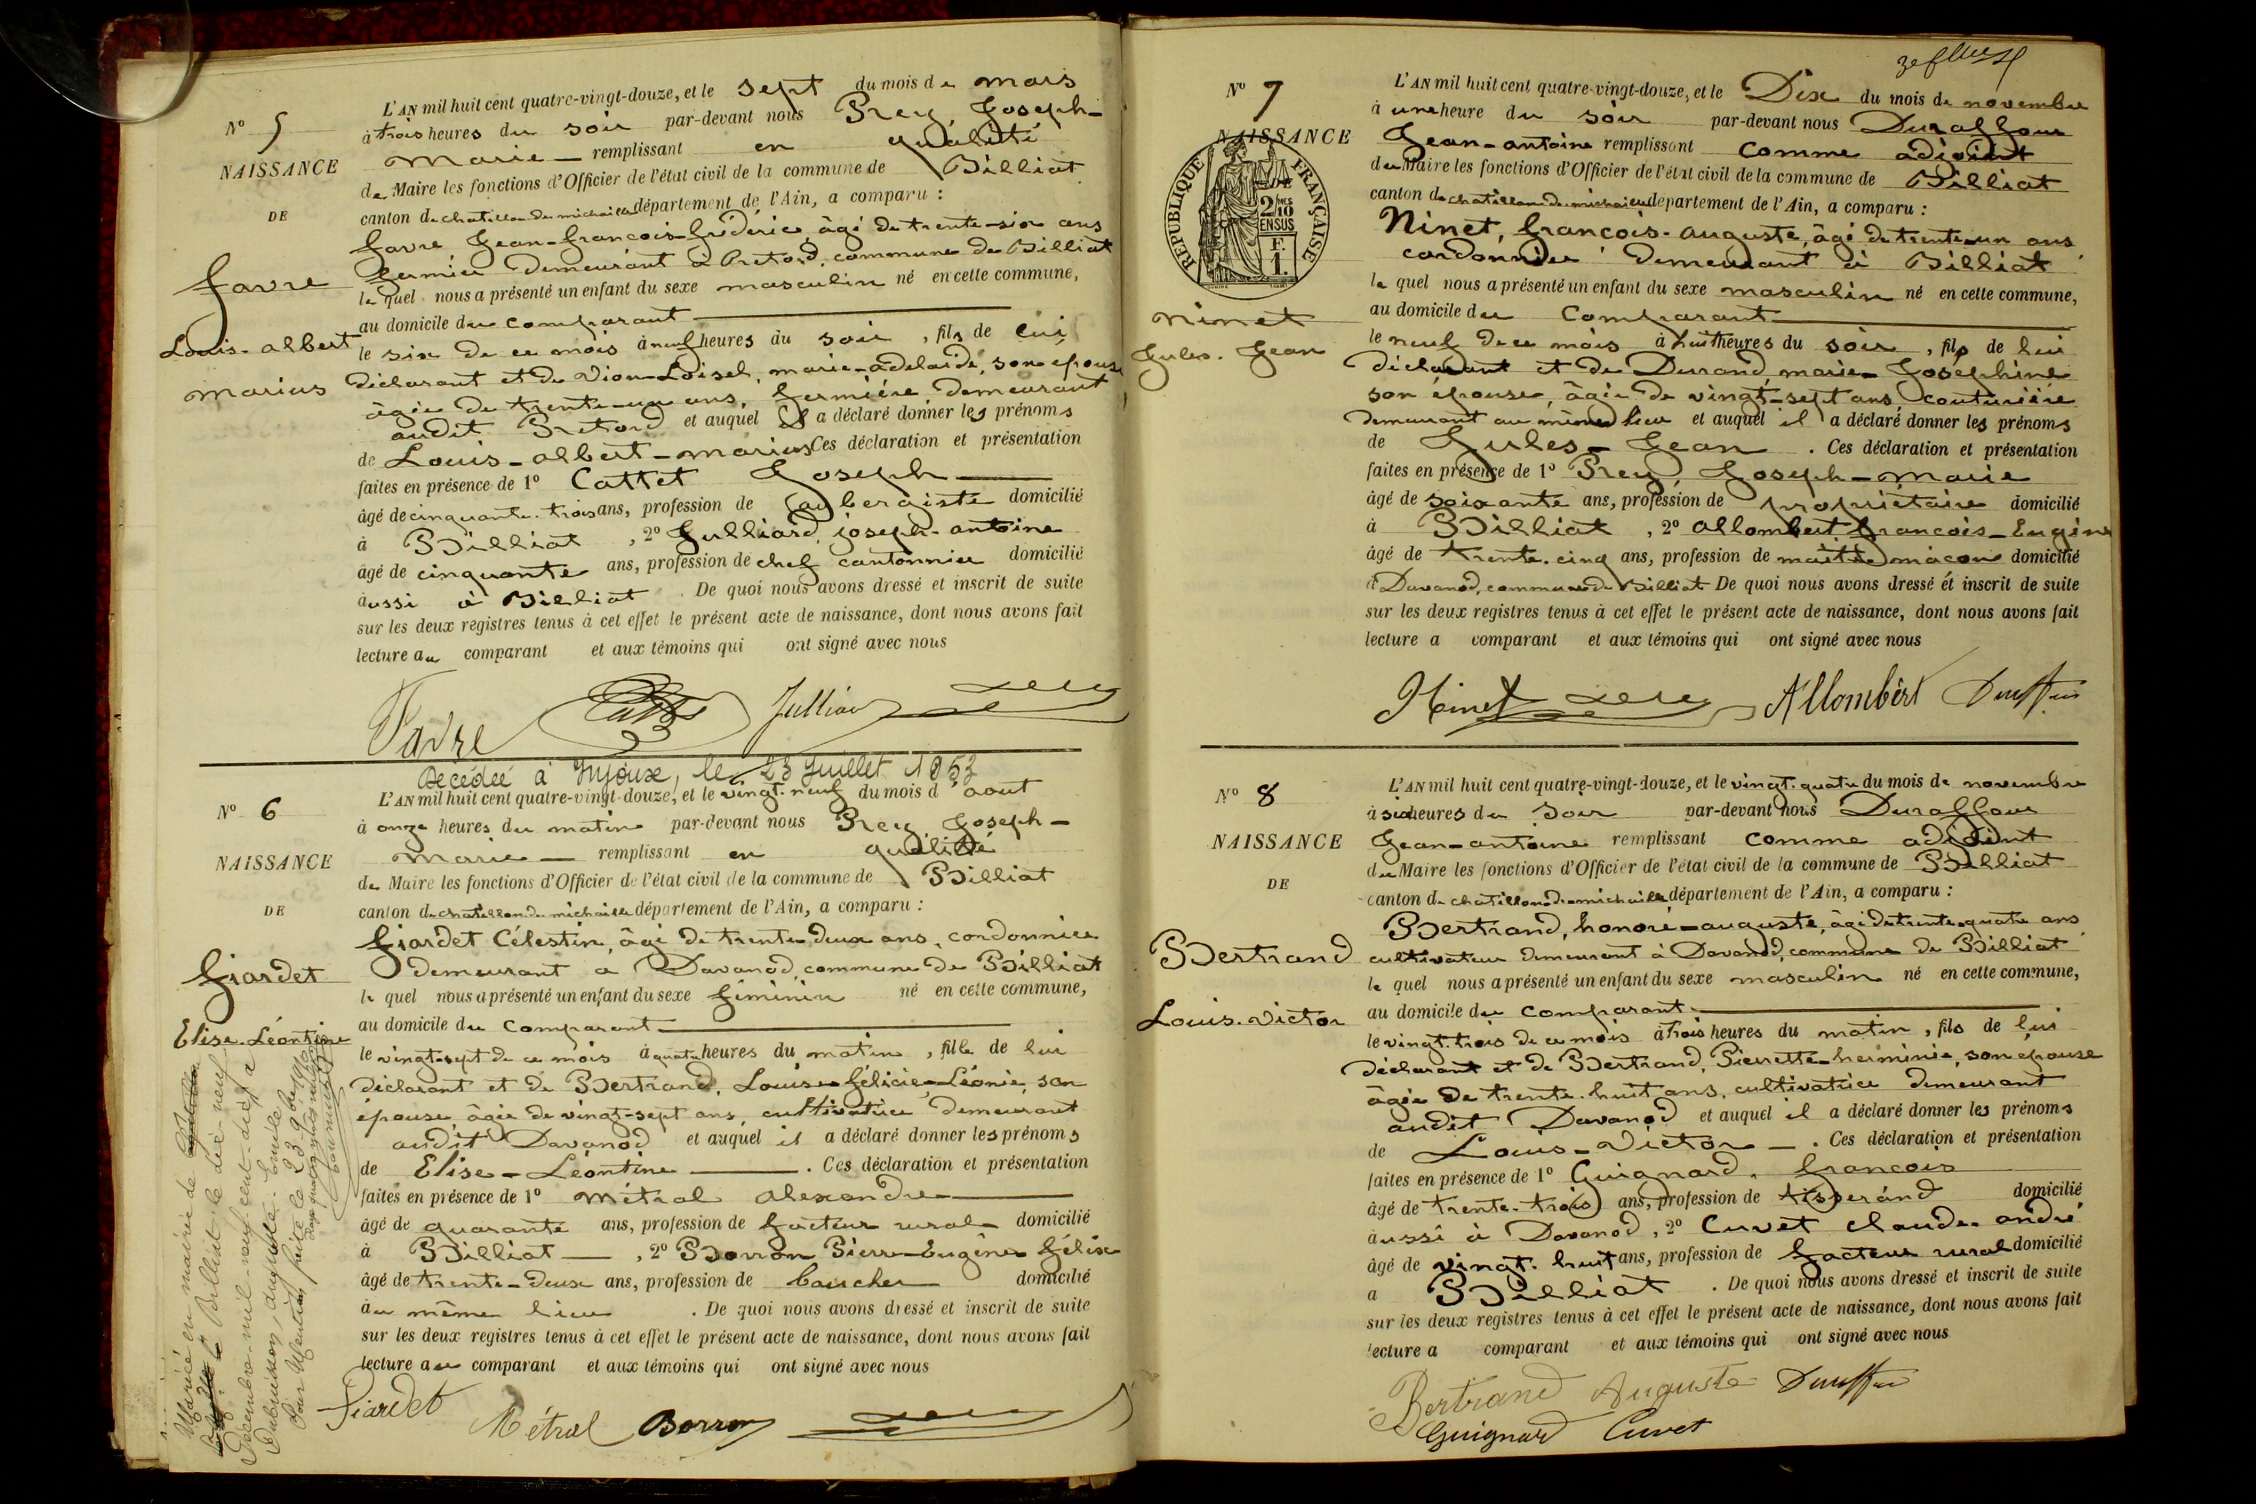 N° 5
NAISSANCE
DE
Favre
Louis-Albert
Marius
L'AN mil huit cent quatre-vingt-douze, et le sept du mois de mars
à trois heures du soir par-devant nous Prey, Joseph-
Marie — remplissant en qualité
de Maire les fonctions d'Officier de l'état civil de la commune de Billiat
canton de chatillon de michaille département de l'Ain, a comparu :
Favre Jean-François-Frédéric âgé de trente-six ans
fermier demeurant à Pretord, commune de Billiat
lequel nous a présenté un enfant du sexe masculin né en cette commune,
au domicile du comparant
le six de ce mois à neuf heures du soir, fils de lui
déclarant et de Vion-Loisel, marie-adelaïde, son épouse
âgée de trente-un ans, fermière, demeurant
audit Pretord et auquel il a déclaré donner les prénoms
de Louis-albert-marius Ces déclaration et présentation
faites en présence de 1° Cattet Joseph
âgé de cinquante-trois ans, profession de aubergiste domicilié
à Billiat, 2° Julliard, joseph-antoine
âgé de cinquante ans, profession de chef cantonnier domicilié
aussi à Billiat. De quoi nous avons dressé et inscrit de suite
sur les deux registres tenus à cet effet le présent acte de naissance, dont nous avons fait
lecture au comparant et aux témoins qui ont signé avec nous
Favre Julliard
Décédée à Injoux, le 23 Juillet 1963
N° 6
NAISSANCE
DE
Giardet
Elise-Léontine
L'AN mil huit cent quatre-vingt-douze, et le vingt-neuf du mois d'aout
à onze heures du matin par-devant nous Prey, Joseph-
Marie — remplissant en qualité
de Maire les fonctions d'Officier de l'état civil de la commune de Billiat
canton de chatillon de michaille département de l'Ain, a comparu :
Giardet Célestin, âgé de trente-deux ans, cordonnier
demeurant à Davanod, commune de Billiat
lequel nous a présenté un enfant du sexe féminin né en cette commune,
au domicile du comparant
le vingt-sept de ce mois à quatre heures du matin, fille de lui
déclarant et de Bertrand, Louise-Félicie-Léonie, son
épouse, âgée de vingt-sept ans, cultivatrice demeurant
audit Davanod et auquel il a déclaré donner les prénoms
de Elise-Léontine. Ces déclaration et présentation
faites en présence de 1° Métral Alexandre
âgé de quarante ans, profession de facteur rural domicilié
à Billiat —, 2° Borron Pierre-Eugène Félix
âgé de trente-deux ans, profession de boucher domicilié
au même lieu. De quoi nous avons dressé et inscrit de suite
sur les deux registres tenus à cet effet le présent acte de naissance, dont nous avons fait
lecture au comparant et aux témoins qui ont signé avec nous
Giardet Métral Borron
Mariée en mairie de
Billiat le dix-neuf
Décembre mil-neuf-cent-dix à
Dubuisson, Auguste-Emile
Pour Mention faite le 23
N° 7
NAISSANCE
RÉPUBLIQUE FRANÇAISE
2/10 EN SUS
F. 1.
Ninet
Jules-Jean
L'AN mil huit cent quatre-vingt-douze, et le Dix du mois de novembre
à une heure du soir par-devant nous Duraffour
Jean-antoine remplissant comme adjoint
du Maire les fonctions d'Officier de l'état civil de la commune de Billiat
canton de chatillon de michaille département de l'Ain, a comparu :
Ninet, François-auguste, âgé de trente-un ans
cordonnier demeurant à Billiat
lequel nous a présenté un enfant du sexe masculin né en cette commune,
au domicile du comparant
le neuf de ce mois à huit heures du soir, fils de lui
déclarant et de Durand, marie-Joséphine
son épouse, âgée de vingt-sept ans, couturière
demeurant au même lieu et auquel il a déclaré donner les prénoms
de Jules-Jean. Ces déclaration et présentation
faites en présence de 1° Prey, Joseph-marie
âgé de soixante ans, profession de propriétaire domicilié
à Billiat, 2° allombert françois-Eugène
âgé de trente-cinq ans, profession de maître maçon domicilié
à Davanod, commune de Billiat De quoi nous avons dressé et inscrit de suite
sur les deux registres tenus à cet effet le présent acte de naissance, dont nous avons fait
lecture a comparant et aux témoins qui ont signé avec nous
Ninet Allombert
N° 8
NAISSANCE
DE
Bertrand
Louis-Victor
L'AN mil huit cent quatre-vingt-douze, et le vingt-quatre du mois de novembre
à six heures du soir par-devant nous Duraffour
Jean-antoine remplissant comme adjoint
du Maire les fonctions d'Officier de l'état civil de la commune de Billiat
canton de chatillon de michaille département de l'Ain, a comparu :
Bertrand, honoré-auguste, âgé de trente-quatre ans
cultivateur demeurant à Davanod, commune de Billiat
lequel nous a présenté un enfant du sexe masculin né en cette commune,
au domicile du comparant
le vingt-trois de ce mois à trois heures du matin, fils de lui
déclarant et de Bertrand, Pierrette-herminie, son épouse
âgée de trente-huit ans, cultivatrice demeurant
audit Davanod et auquel il a déclaré donner les prénoms
de Louis-Victor —. Ces déclaration et présentation
faites en présence de 1° Guignard, françois
âgé de trente-trois ans, profession de tisserand domicilié
aussi à Davanod, 2° Cuvet claude andré
âgé de vingt-huit ans, profession de facteur rural domicilié
a Billiat. De quoi nous avons dressé et inscrit de suite
sur les deux registres tenus à cet effet le présent acte de naissance, dont nous avons fait
lecture a comparant et aux témoins qui ont signé avec nous
Bertrand Auguste
Guignard Cuvet